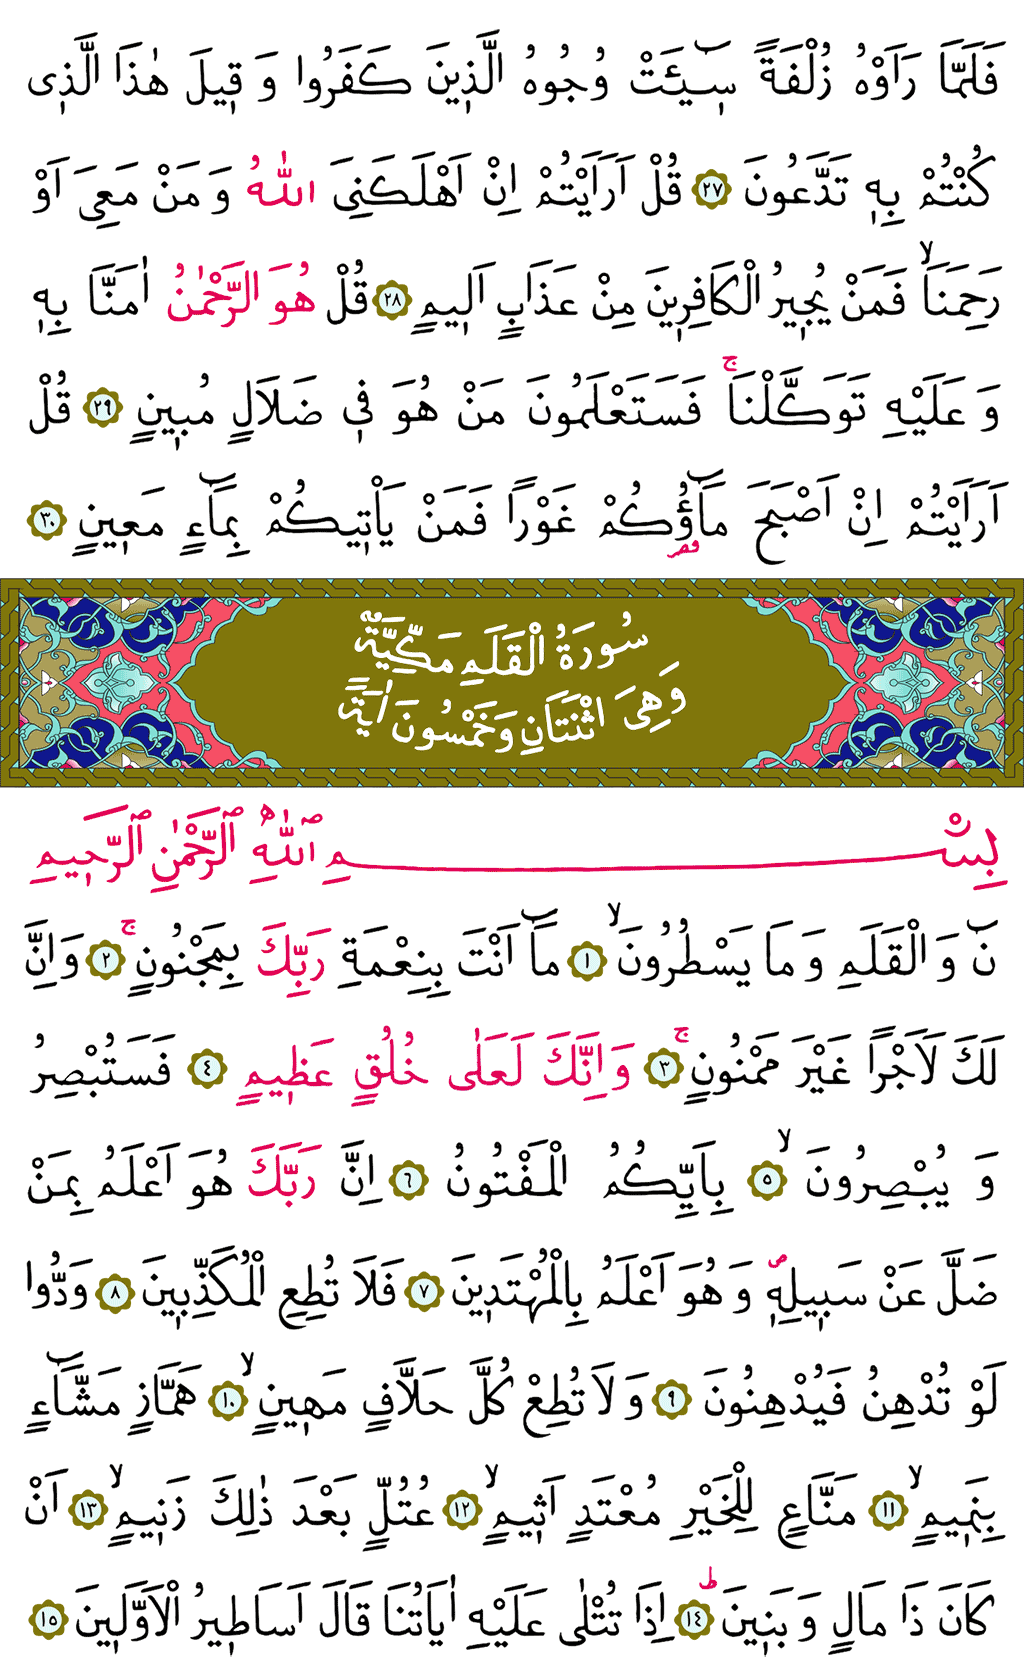 فَلَمَّا رَاَوْهُ زُلْفَةً سٖٓيـَٔتْ وُجُوهُ الَّذٖينَ كَفَرُوا وَ قٖيلَ هٰذَا الَّذٖى
كُنْتُمْ بِهٖ تَدَّعُونَ ﴿٢٧﴾ قُلْ اَرَاَيْتُمْ اِنْ اَهْلَكَنِىَ اللّٰهُ وَ مَنْ مَعِىَ اَوْ
رَحِمَنَاۙ فَمَنْ يُجٖيرُ الْكَافِرٖينَ مِنْ عَذَابٍ اَلٖيمٍ ﴿٢٨﴾ قُلْ هُوَ الرَّحْمٰنُ اٰمَنَّا بِهٖ
وَ عَلَيْهِ تَوَكَّلْنَاۚ فَسَتَعْلَمُونَ مَنْ هُوَ فٖى ضَلَالٍ مُبٖينٍ ﴿٢٩﴾ قُلْ
اَرَاَيْتُمْ اِنْ اَصْبَحَ مَٓاؤُ۬كُمْ غَوْرًا فَمَنْ يَاْتٖيكُمْ بِمَٓاءٍ مَعٖينٍ ﴿٣٠﴾
سُورَةُ الْقَلَمِ مَكِّيَّةٌ
وَهِىَ اثْنَتَانِ وَخَمْسُونَ اٰيَةً
بِسْمِ اللّٰهِ الرَّحْمٰنِ الرَّحٖيمِ
نٓ وَ الْقَلَمِ وَ مَا يَسْطُرُونَۙ ﴿١﴾ مَٓا اَنْتَ بِنِعْمَةِ رَبِّكَ بِمَجْنُونٍۚ ﴿٢﴾ وَاِنَّ
لَكَ لَاَجْرًا غَيْرَ مَمْنُونٍۚ ﴿٣﴾ وَاِنَّكَ لَعَلٰى خُلُقٍ عَظٖيمٍ ﴿٤﴾ فَسَتُبْصِرُ
وَ يُبْصِرُونَۙ ﴿٥﴾ بِاَيِّكُمُ الْمَفْتُونُ ﴿٦﴾ اِنَّ رَبَّكَ هُوَ اَعْلَمُ بِمَنْ
ضَلَّ عَنْ سَبٖيلِهٖࣕ وَ هُوَ اَعْلَمُ بِالْمُهْتَدٖينَ ﴿٧﴾ فَلَا تُطِعِ الْمُكَذِّبٖينَ ﴿٨﴾ وَدُّوا
لَوْ تُدْهِنُ فَيُدْهِنُونَ ﴿٩﴾ وَ لَا تُطِعْ كُلَّ حَلَّافٍ مَهٖينٍۙ ﴿١٠﴾ هَمَّازٍ مَشَّٓاءٍ
بِنَمٖيمٍۙ ﴿١١﴾ مَنَّاعٍ لِلْخَيْرِ مُعْتَدٍ اَثٖيمٍۙ ﴿١٢﴾ عُتُلٍّ بَعْدَ ذٰلِكَ زَنٖيمٍۙ ﴿١٣﴾ اَنْ
كَانَ ذَا مَالٍ وَ بَنٖينَؕ ﴿١٤﴾ اِذَا تُتْلٰى عَلَيْهِ اٰيَاتُنَا قَالَ اَسَاطٖيرُ الْاَوَّلٖينَ ﴿١٥﴾